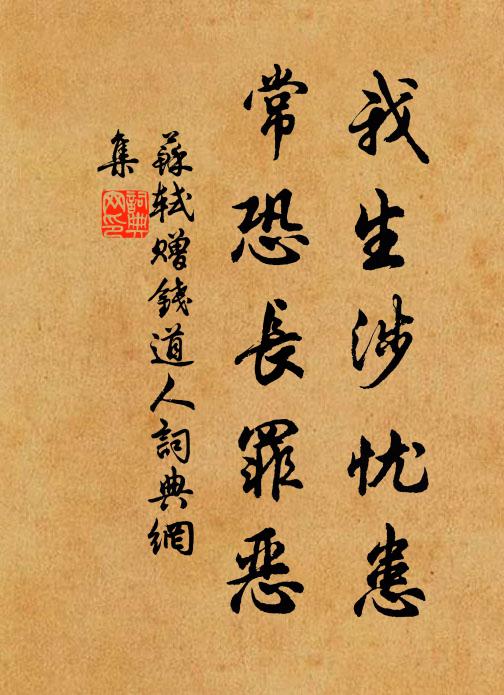 我生涉忧患
常恐長罪惡
蘇軾赠錢道人詞典網
集
詞典網印